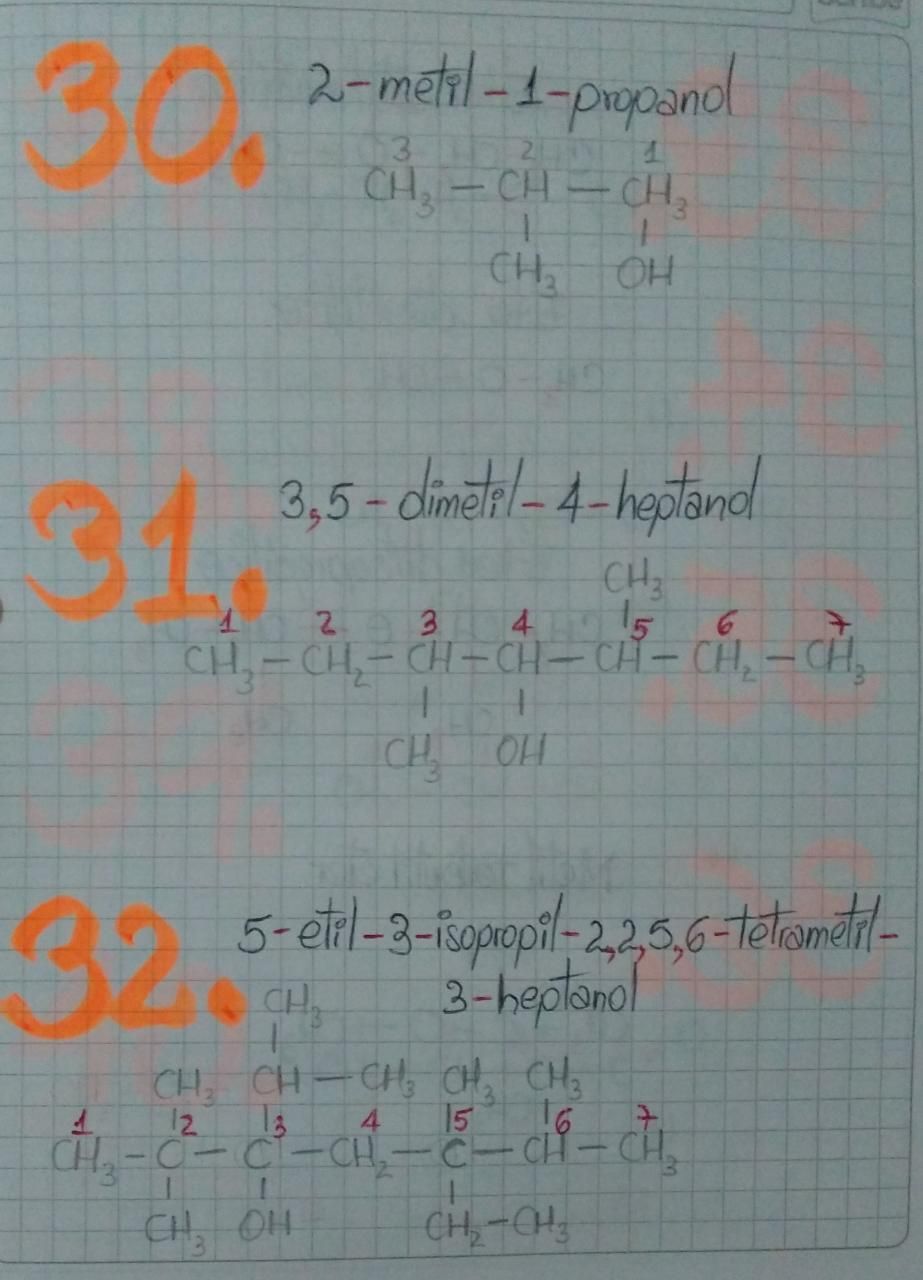 30. 2-metil-1-propanol
3 2 1
CH₃ — CH — CH₃
CH₃ OH
31. 3,5-dimetil-4-heptanol
CH₃
1 2 3 4 5 6 7
CH₃ — CH₂ — CH — CH — CH — CH₂ — CH₃
CH₃ OH
32. 5-etil-3-isopropil-2,2,5,6-tetrametil-
3-heptanol
CH₃
CH₃ CH — CH₃ CH₃ CH₃
1 2 3 4 5 6 7
CH₃ — C — C — CH₂ — C — CH — CH₃
CH₃ OH CH₂ — CH₃